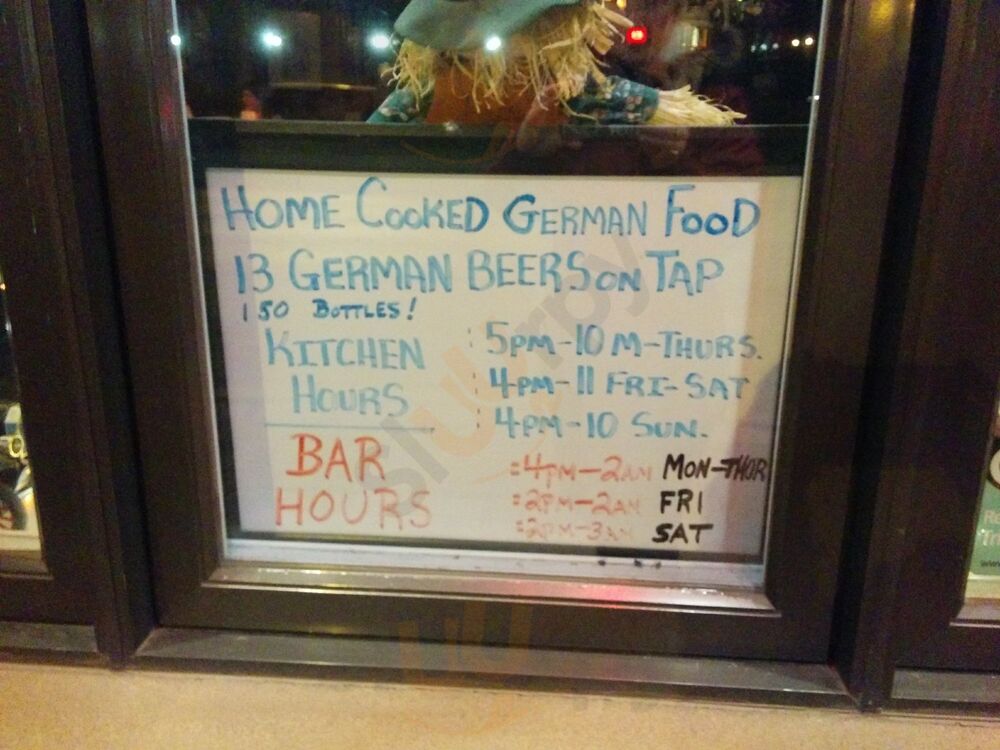 HOME COOKED GERMAN FOOD
13 GERMAN BEERS ON TAP
150 BOTTLES!
KITCHEN HOURS
: 5PM-10 M-THURS.
: 4PM-11 FRI-SAT
: 4PM-10 SUN.
BAR HOURS
:4PM-2AM MON-THUR
:2PM-2AM FRI
:2PM-3AM SAT
sluurrpy